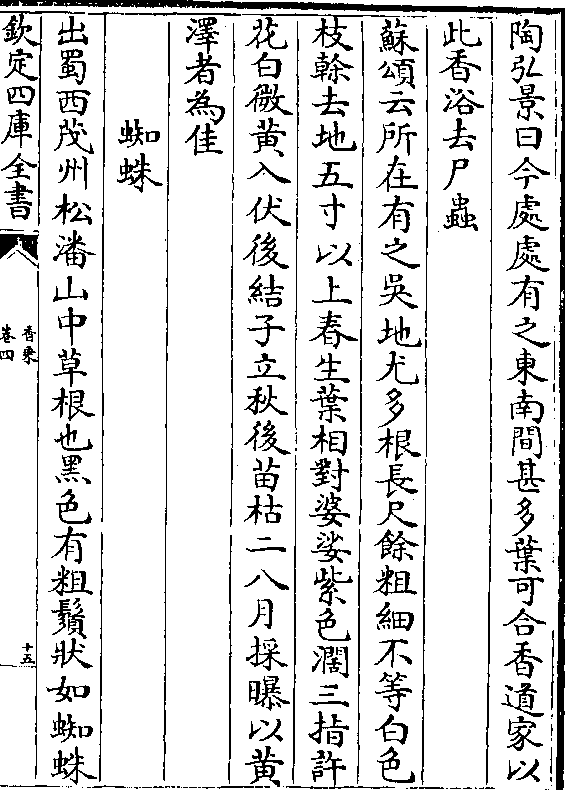 陶弘景曰今處處有之東南間甚多葉可合香道家以
此香浴去尸蟲
蘇頌云所在有之吳地尤多根長尺餘粗細不等白色
枝榦去地五寸以上春生葉相對婆娑紫色濶三指許
花白微黄入伏後結子立秋後苗枯二八月採曝以黄
澤者為佳
蜘蛛
出蜀西茂州松潘山中草根也黑色有粗鬚狀如蜘蛛
欽定四庫全書
香乗
卷四
十五